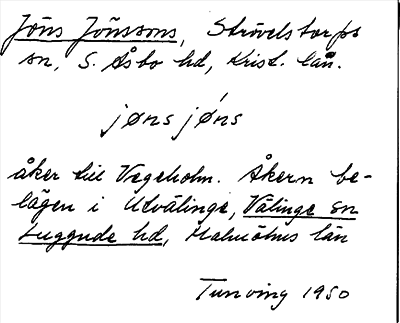 Jöns Jönssons, Strövelstorps
sn, S. Åsbo hd, Krist. län.
jøns jǿns
åker till Vegeholm. Åkern be-
lägen i Utvälinge, Välinge sn
Luggude hd, Malmöhus län
Tunving 1950